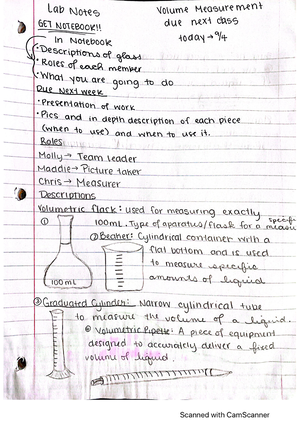 Lab Notes
Volume Measurement
due next class
GET NOTEBOOK!!
today → 9/4
In Notebook
• Descriptions of glass
• Roles of each member
• What you are going to do
Due Next week
• Presentation of work
• Pics and in depth description of each piece
(when to use) and when to use it.
Roles
Molly → Team leader
Maddie → Picture taker
Chris → Measurer
Descriptions
Volumetric flask: used for measuring exactly
① 100mL. Type of apparatus/flask for a specific
② Beaker: Cylindrical container with a
flat bottom and is used
to measure specific
amounts of liquid
100mL
③ Graduated Cylinder: Narrow cylindrical tube
to measure the volume of a liquid.
④ Volumetric Pipette: A piece of equipment
designed to accurately deliver a fixed
volume of liquid.
Scanned with CamScanner